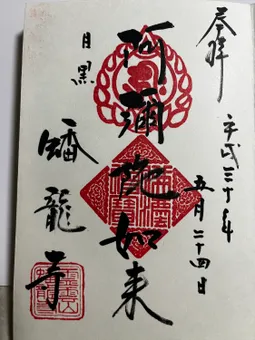 奉拝
平成三十年
五月二十四日
阿彌陀如来
目黒
蟠龍寺